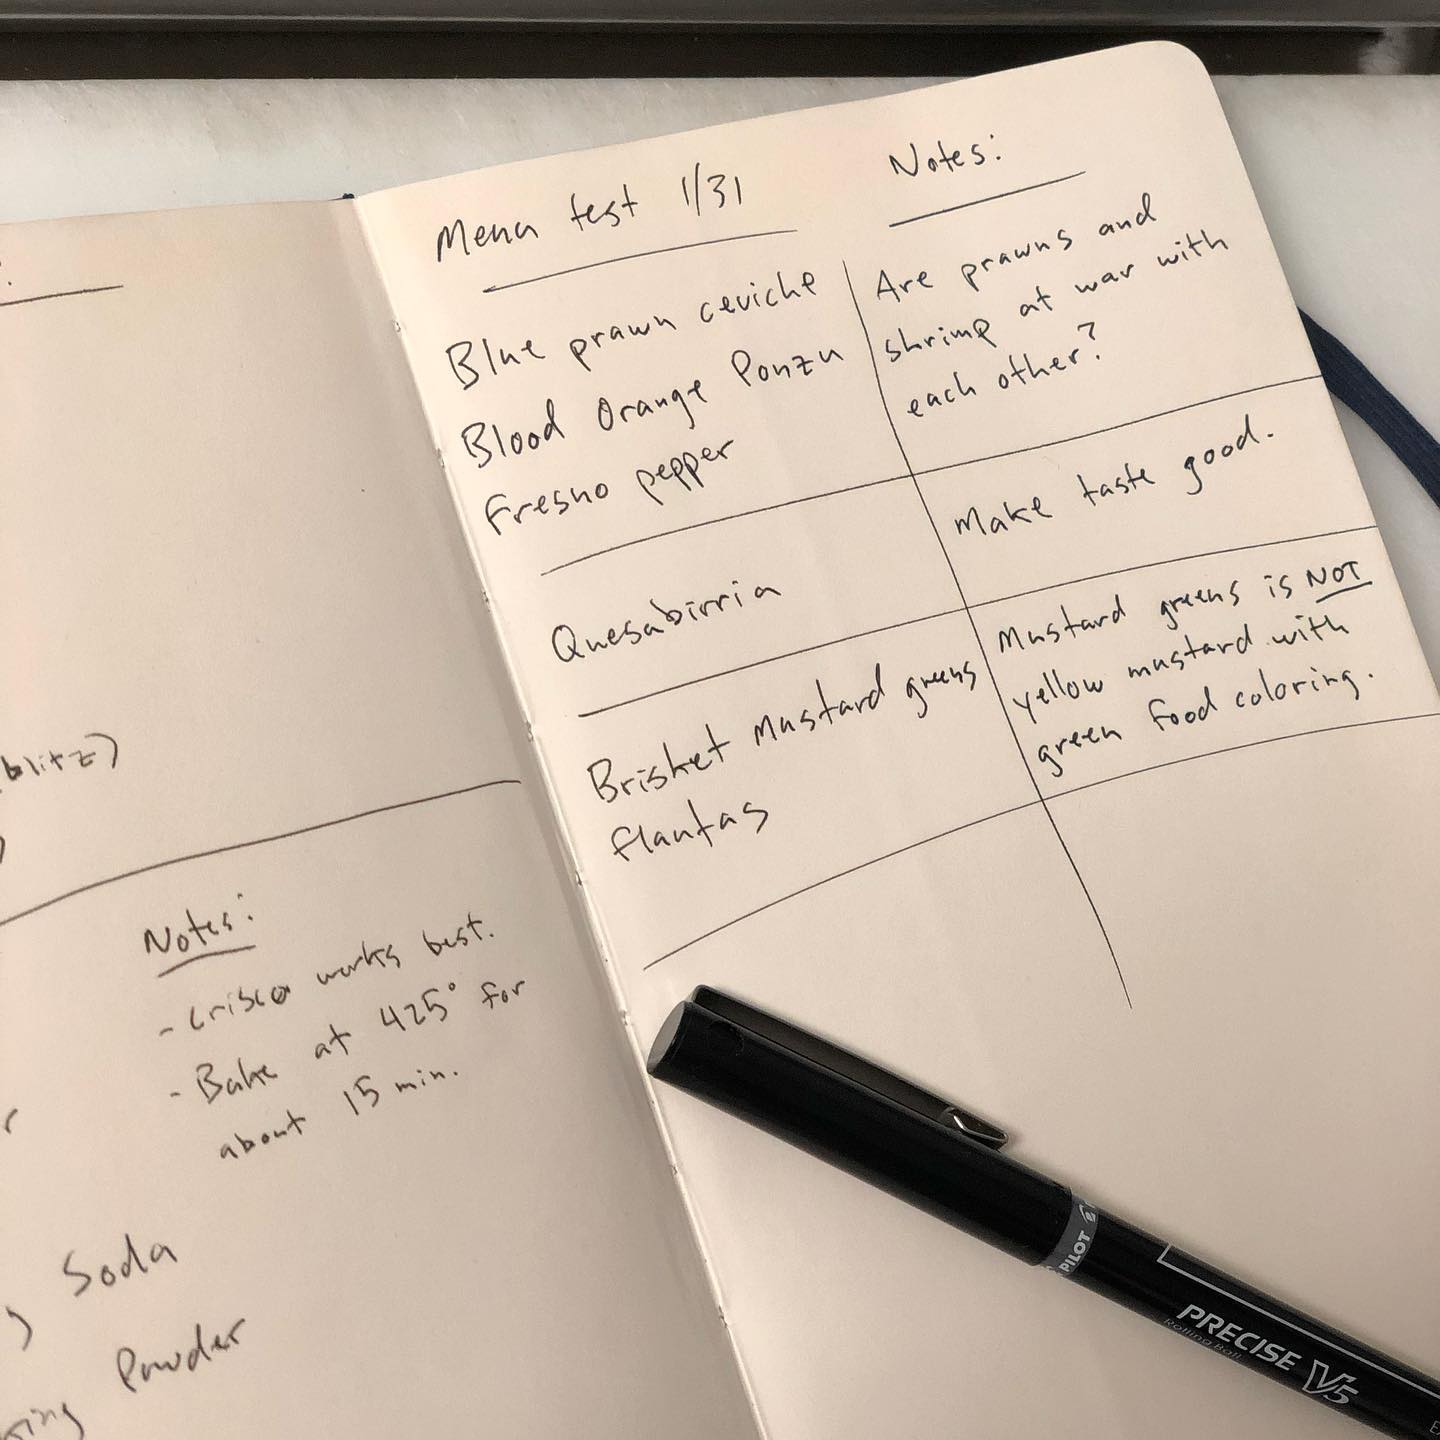 blitz)
Notes:
- Crisco works best.
- Bake at 425° for
about 15 min.
Soda
Powder
Menu test 1/31
Blue prawn ceviche
Blood Orange Ponzu
Fresno pepper
Quesabirria
Brisket Mustard greens
flautas
Notes:
Are prawns and
shrimp at war with
each other?
Make taste good.
Mustard greens is NOT
yellow mustard with
green food coloring.
PILOT
PRECISE V5
Rolling Ball